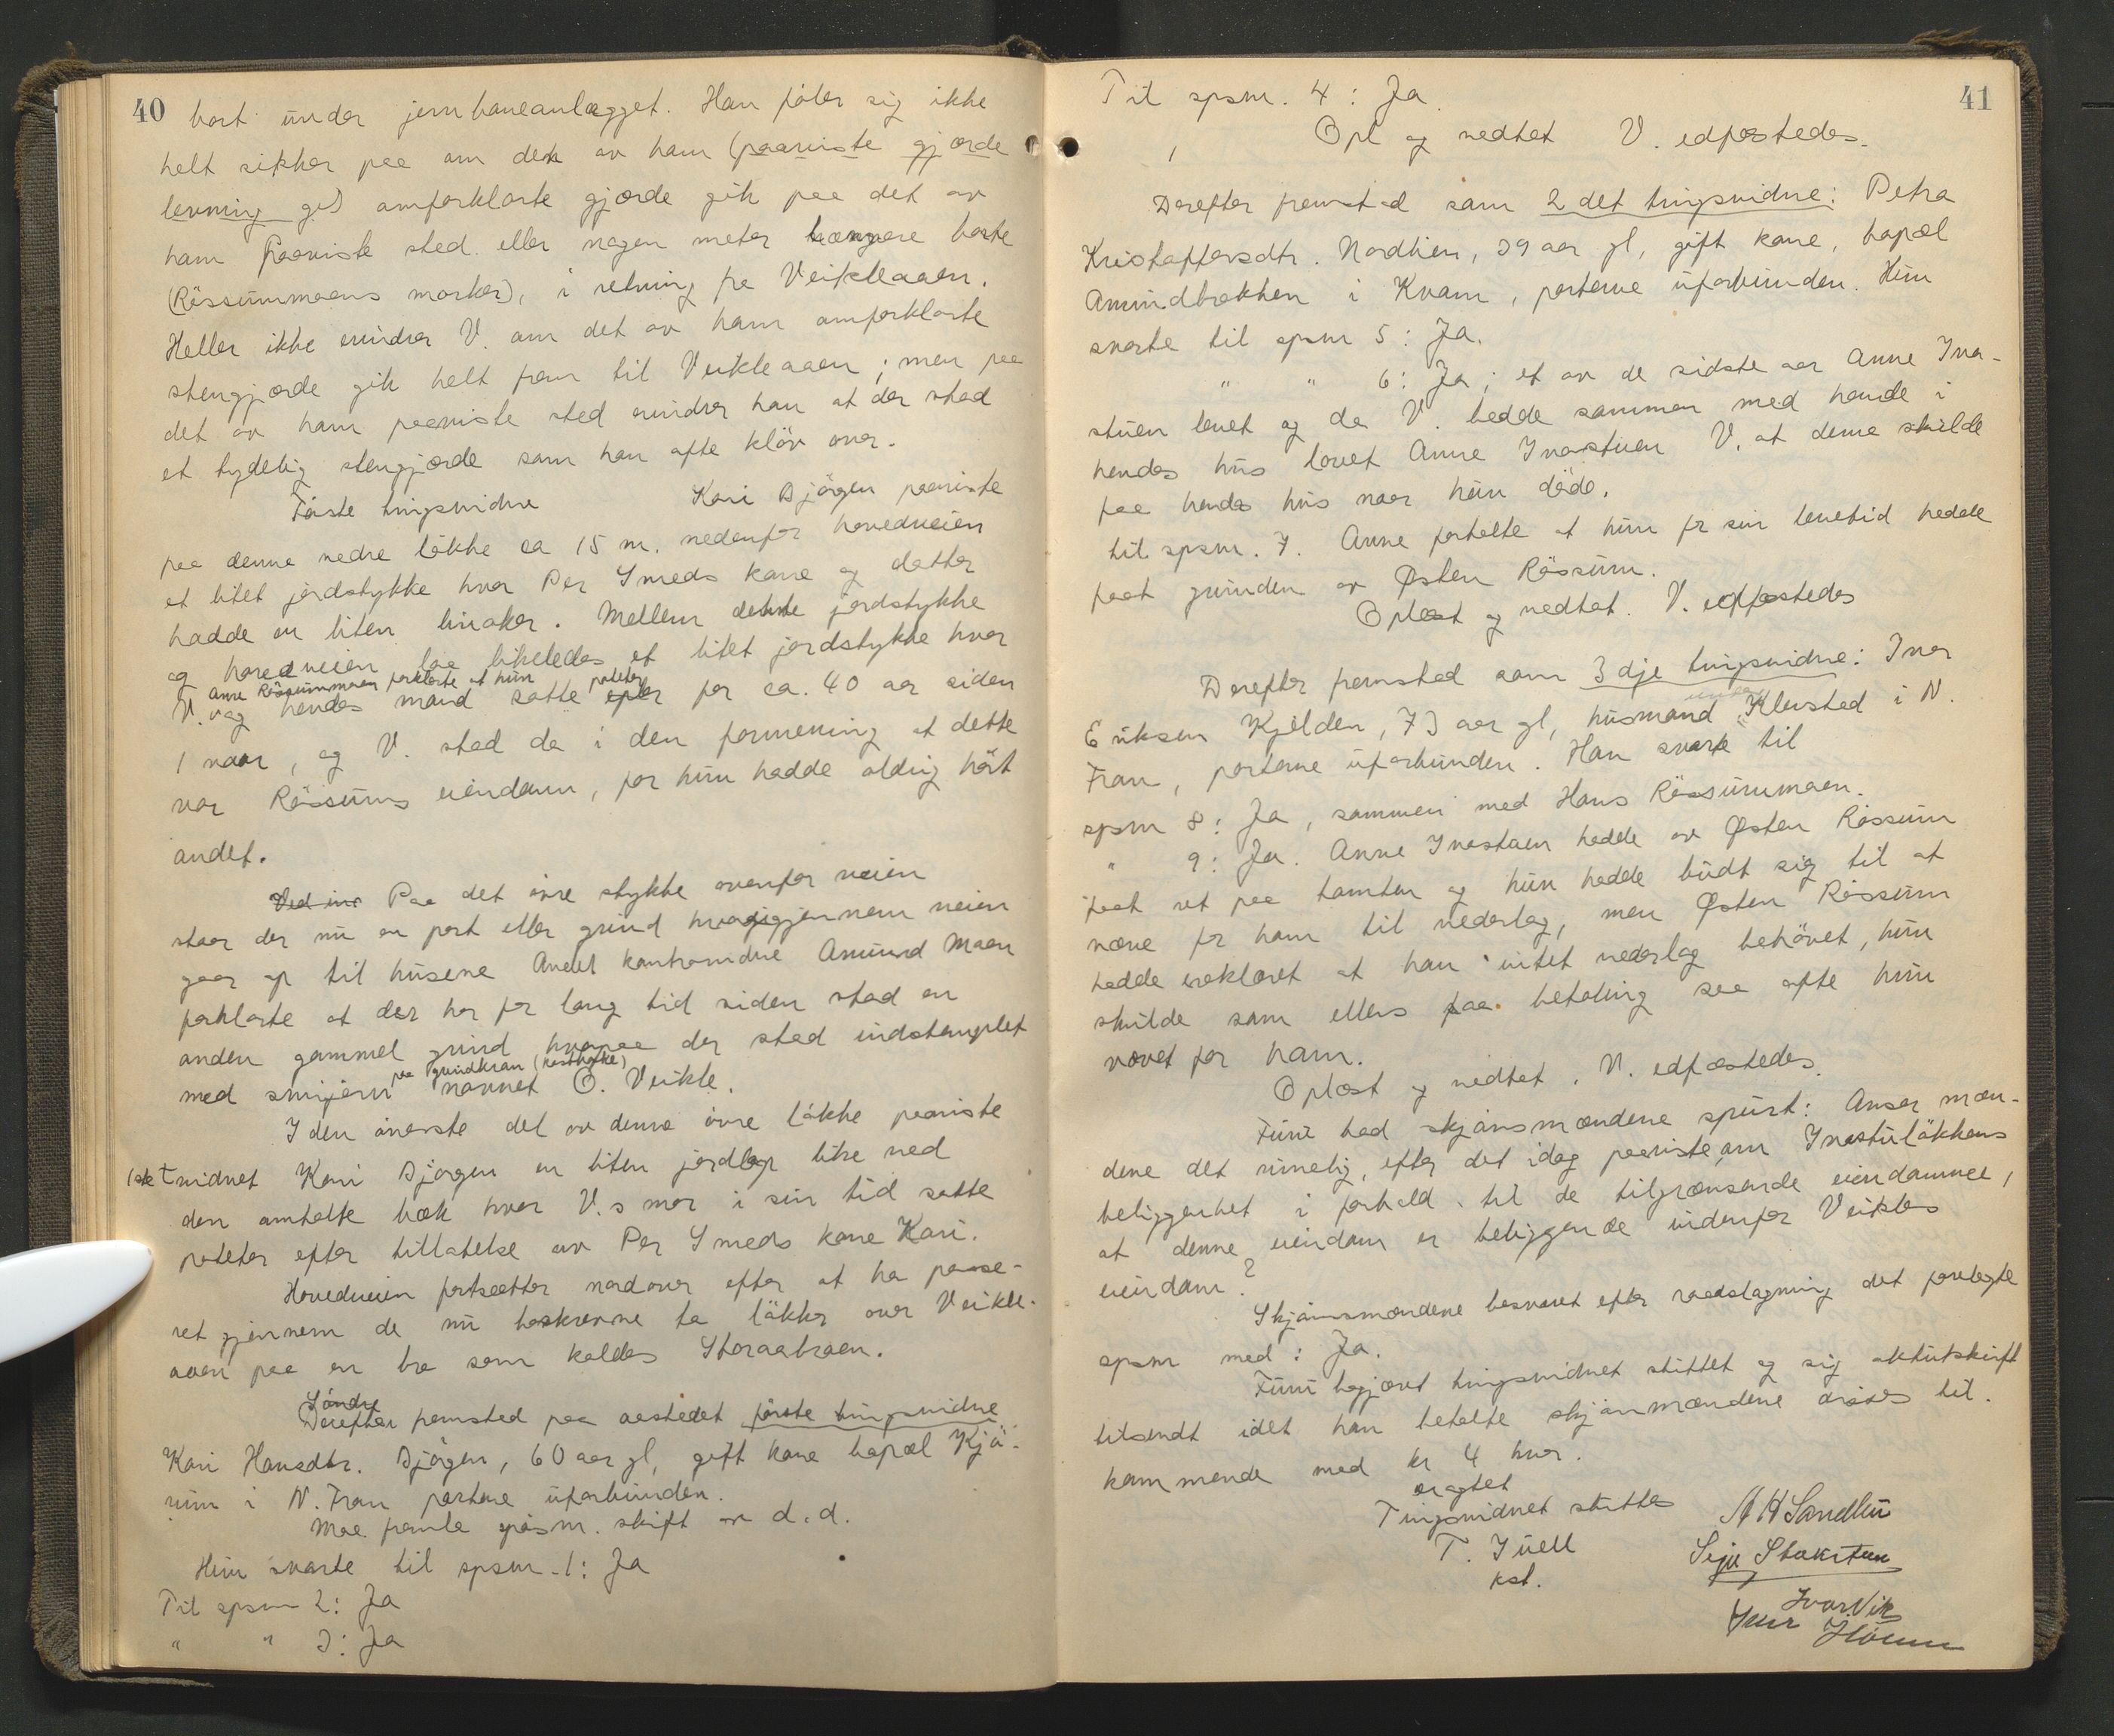 40
bort under jernbaneanlægget. Han föler sig ikke
helt sikker paa om det av ham (paaviste gjærde
levning gs) omforklarte gjærde gik paa det av
ham paaviste sted eller nogen meter længere borte
(Rössummoens marker), i retning fra Veikleaaen.
Heller ikke erindrer V. om det av ham omforklarte
stengjærde gik helt frem til Veikleaaen; men paa
det av ham paaviste sted erindrer han at der stod
et tydelig stengjærde som han ofte klöv over.
Förste tingsvidne Kari Bjögen paaviste
paa denne nedre lökke ca 15 m. nedenfor hovedveien
et litet jordstykke hvor Per Smeds kone og datter
hadde en liten linaker. Mellem dette jordstykke
og hovedveien laa likeledes et litet jordstykke hvor
Anne Rössummoen forklarte at hun poteter
V. og hendes mand satte epler for ca. 40 aar siden
1 vaar, og V. stod da i den formening at dette
var Rössums eiendom, for hun hadde aldrig hört
andet.
Ved in Paa det övre stykke ovenfor veien
staar der nu en port eller grind hvorigjennem veien
gaar op til husene Andet kontravidne Amund Moen
forklarte at der har for lang tid siden stod en
anden gammel grind hvorpaa der stod indstemplet
paa grindkran (
med smijern navnet O. Veikle.
I den överste del av denne övre lökke paaviste
1ste t vidnet Kari Bjögen en liten jordlap like ved
den omtalte bæk hvor V.s mor i sin tid satte
poteter efter tillatelse av Per Smeds kone Kari.
Hovedveien fortsætter nordover efter at ha passe-
ret gjennem de nu beskrevne to lökker over Veikle-
aaen paa en bro som kaldes Storaabroen.
Söndre
Derefter fremsted paa aastedet förste tingsvidne
Kari Hansdtr. Bjögen, 60 aar gl, gift kone bopæl Kjö-
rum i N. Fron partene uforbunden.
Mae fremla spörsm. skrift av d.d.
Hun svarte til spsm. 1: Ja
Til spsm 2: Ja
" " 3: Ja
41
Til spsm. 4: Ja.
Opl og vedtat V. edfæstedes.
Derefter fremstod som 2det tingsvidne: Petra
Kristoffersdtr. Nordlien, 39 aar gl, gift kone, bopæl
Amundbakken i Kvam, partene uforbunden. Hun
svarte til spsm 5: Ja.
" " 6: Ja; et av de sidste aar Anne Iva-
stuen levet og da V. bodde sammen med hende i
hendes hus lovet Anne Ivastuen V. at denne skulde
faa hendes hus naar hun döde.
til spsm. 7. Anne fortalte at hun for sin levetid hadde
faat grunden av Østen Rössum.
Oplæst og vedtat. V. edfæstedes
Derefter fremstod som 3dje tingsvidne: Iver
Eriksen Kjelden, 73 aar gl, husmand under Klevstad i N.
Fron, partene uforbunden. Han svarte til
spsm 8: Ja, sammen med Hans Rössummoen.
" 9: Ja. Anne Ivastuen hadde av Østen Rössum
faat ret paa tomten og hun hadde budt sig til at
væve for ham til vederlag, men Østen Rössum
hadde erklæret at han intet vederlag behövet, hun
skulde som ellers faa betaling saa ofte hun
vævet for ham.
Oplæst og vedtat. V. edfæstedes.
Furu bad skjönsmændene spurt: Anser mæn-
dene det rimelig, efter det idag paaviste, om Ivastulökkens
beliggenhet i forhold til de tilgrænsende eiendomme,
at denne eiendom er beliggende indenfor Veikles
eiendom?
Skjönsmændene besvaret efter raadslagning det forelagte
spsm med: Ja.
Furu begjæret tingsvidnet sluttet og sig aktutskrift
tilsendt idet han betalte skjönmændene deres til-
kommende med kr 4 hver.
eragtet
Tingsvidnet sluttes
T. Juell
kst.
A H Sandbu
Stokstuen
Ivar Vik
Iver